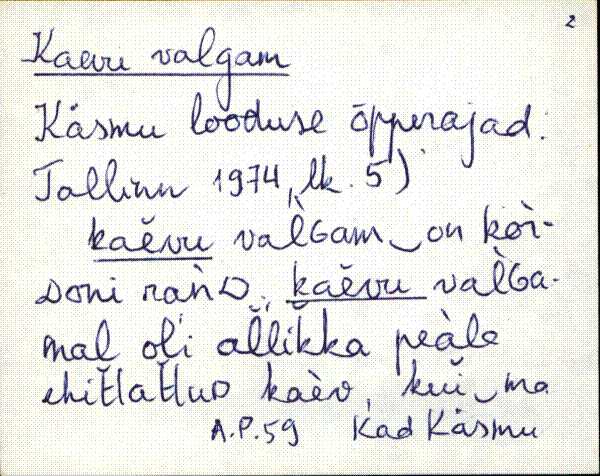 2
Kaevu valgam
Käsmu looduse õpperajad.
Tallinn 1974, lk. 5)
kaĕvu val̀Gam‿on kòr-
Doni ràńD, kaĕvu val̀Ga-
mal oĺi al̆likka peàle
ehit̆lat̆luD kaèv, kui‿ma
A.P.59 Kad Käsmu